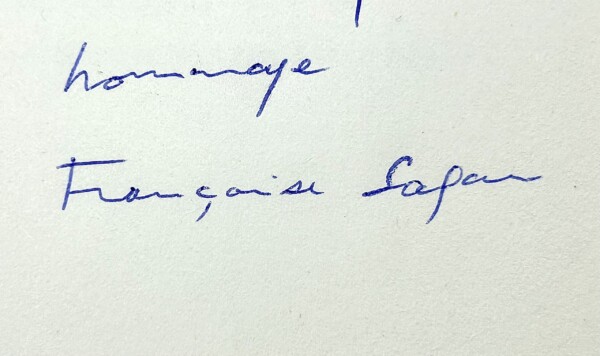 hommage
Françoise Sagan